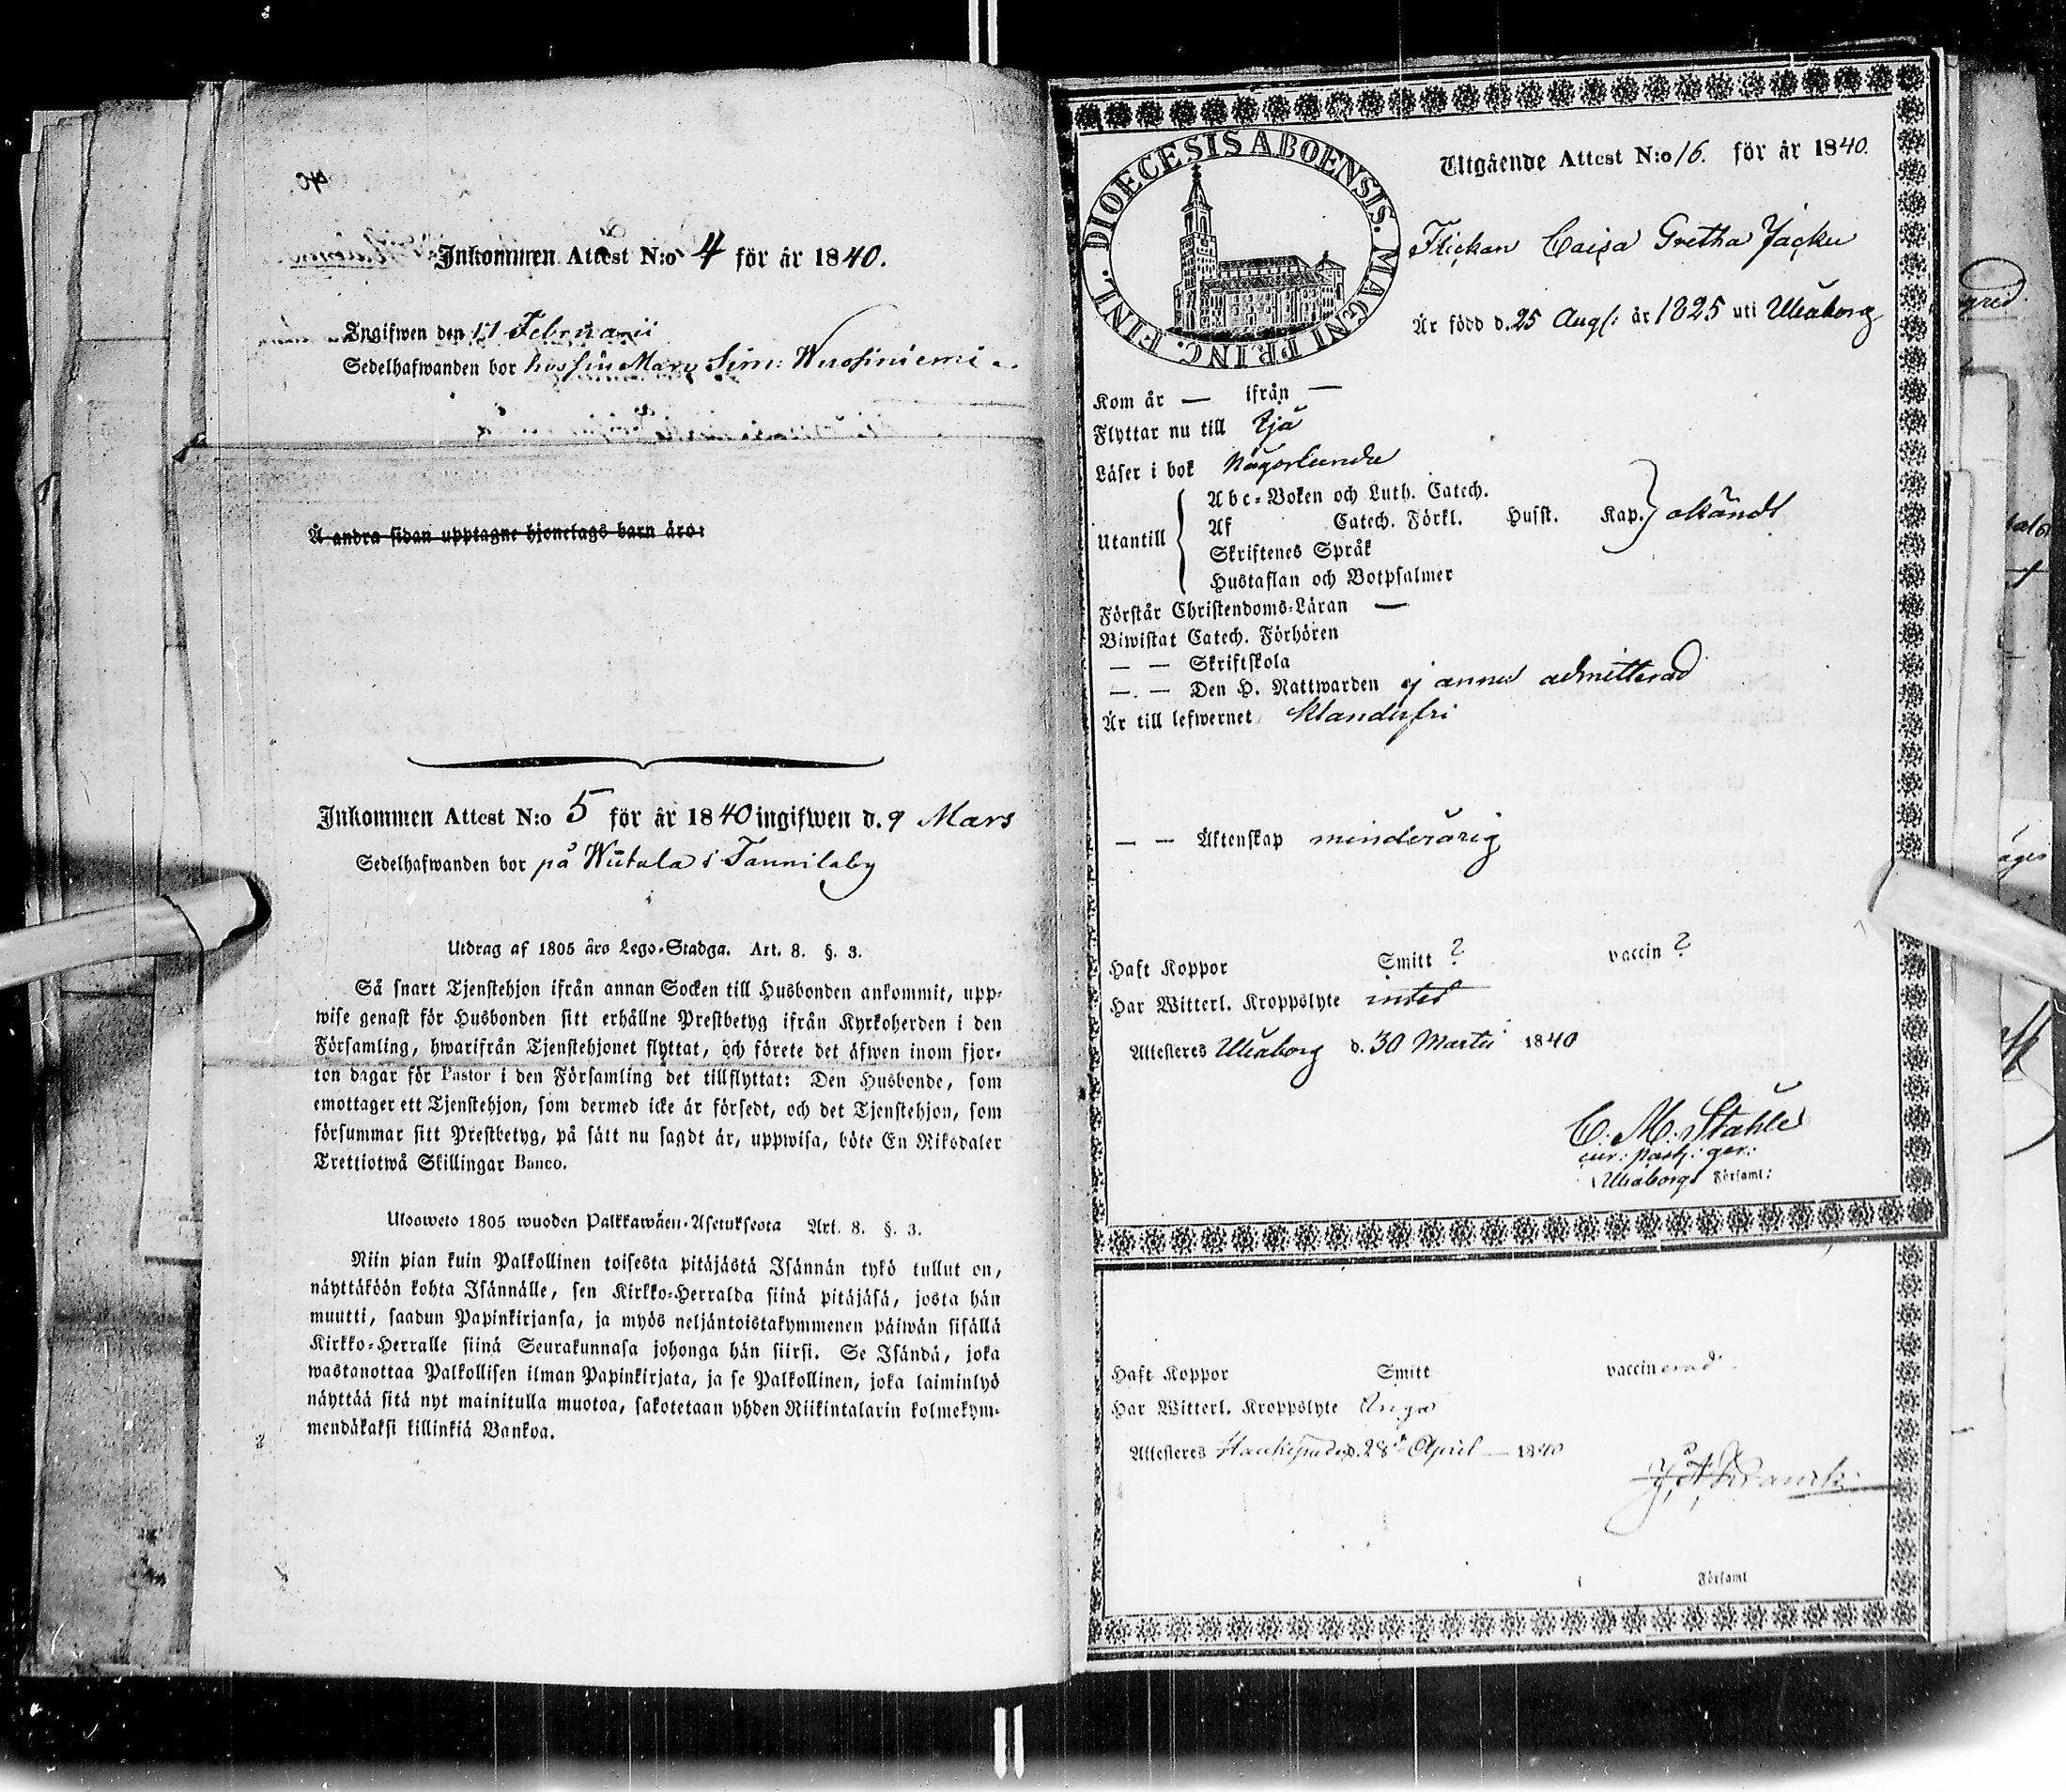 Inkommen Attest N:o 4 för år 1840.
Ingifwen den 17 Februarii
Sedelhafwanden bor hos sin Man Sim: Wuosiniemi
Å andra sidan upptagne hjonelags barn äro:
Inkommen Attest N:o 5 för år 1840 ingifwen d. 9 Mars
Sedelhafwanden bor på Wiitala i Tannilaby
Utdrag af 1805 års Lego-Stadga. Art. 8. §. 3.
Så snart Tjenstehjon ifrån annan Socken till Husbonden ankommit, upp-
wise genast för Husbonden sitt erhållne Prestbetyg ifrån Kyrkoherden i den
Församling, hwarifrån Tjenstehjonet flyttat, och förete det äfwen inom fjor-
ton dagar för Pastor i den Församling det tillflyttat: Den Husbonde, som
emottager ett Tjenstehjon, som dermed icke är försedt, och det Tjenstehjon, som
försummar sitt Prestbetyg, på sätt nu sagdt är, uppwisa, böte En Riksdaler
Trettiotwå Skillingar Banco.
Ulosweto 1805 wuoden Palkkawäen-Asetuksesta Art. 8. §. 3.
Niin pian kuin Palkollinen toisesta pitäjästä Isännän tykö tullut on,
näyttäköön kohta Isännälle, sen Kirkko-Herralda siinä pitäjäsä, josta hän
muutti, saadun Papinkirjansa, ja myös neljäntoistakymmenen päiwän sisällä
Kirkko-Herralle siinä Seurakunnasa johonga hän siirsi. Se Isändä, joka
wastanottaa Palkollisen ilman Papinkirjata, ja se Palkollinen, joka laiminlyö
näyttää sitä nyt mainitulla muotoa, sakotetaan yhden Riikintalarin kolmekym-
mendäkaksi killinkiä Bankoa.
DIOECESIS ABOENSIS. MAGNI PRINC. FINL.
Utgående Attest N:o 16. för år 1840.
Flickan Caisa Gretha Jacku
Är född d. 25 Aug: år 1825 uti Uleåborg
Kom år — ifrån —
Flyttar nu till Ijå
Läser i bok någorlunda
Abc-Boken och Luth. Catech.
Utantill Af Catech. Förkl. Husst. Kap. okändt
Skriftenes Språk
Hustaflan och Botpsalmer
Förstår Christendoms-Läran —
Biwistat Catech. Förhören
— — Skriftskola
— — Den H. Nattwarden ej ännu admitterad
Är till lefwernet klanderfri
— — Äktenskap minderårig
Haft Koppor Smitt ? vaccin ?
Har Witterl. Kroppslyte intet
Attesteres Uleåborg d. 30 Martii 1840
C: M: Ståhle
cur: past: ger:
i Uleåborgs Församl:
Haft Koppor Smitt vaccinerad
Har Witterl. Kroppslyte Inga
Attesteres Haukipudas d. 28 April — 1840
i Församl